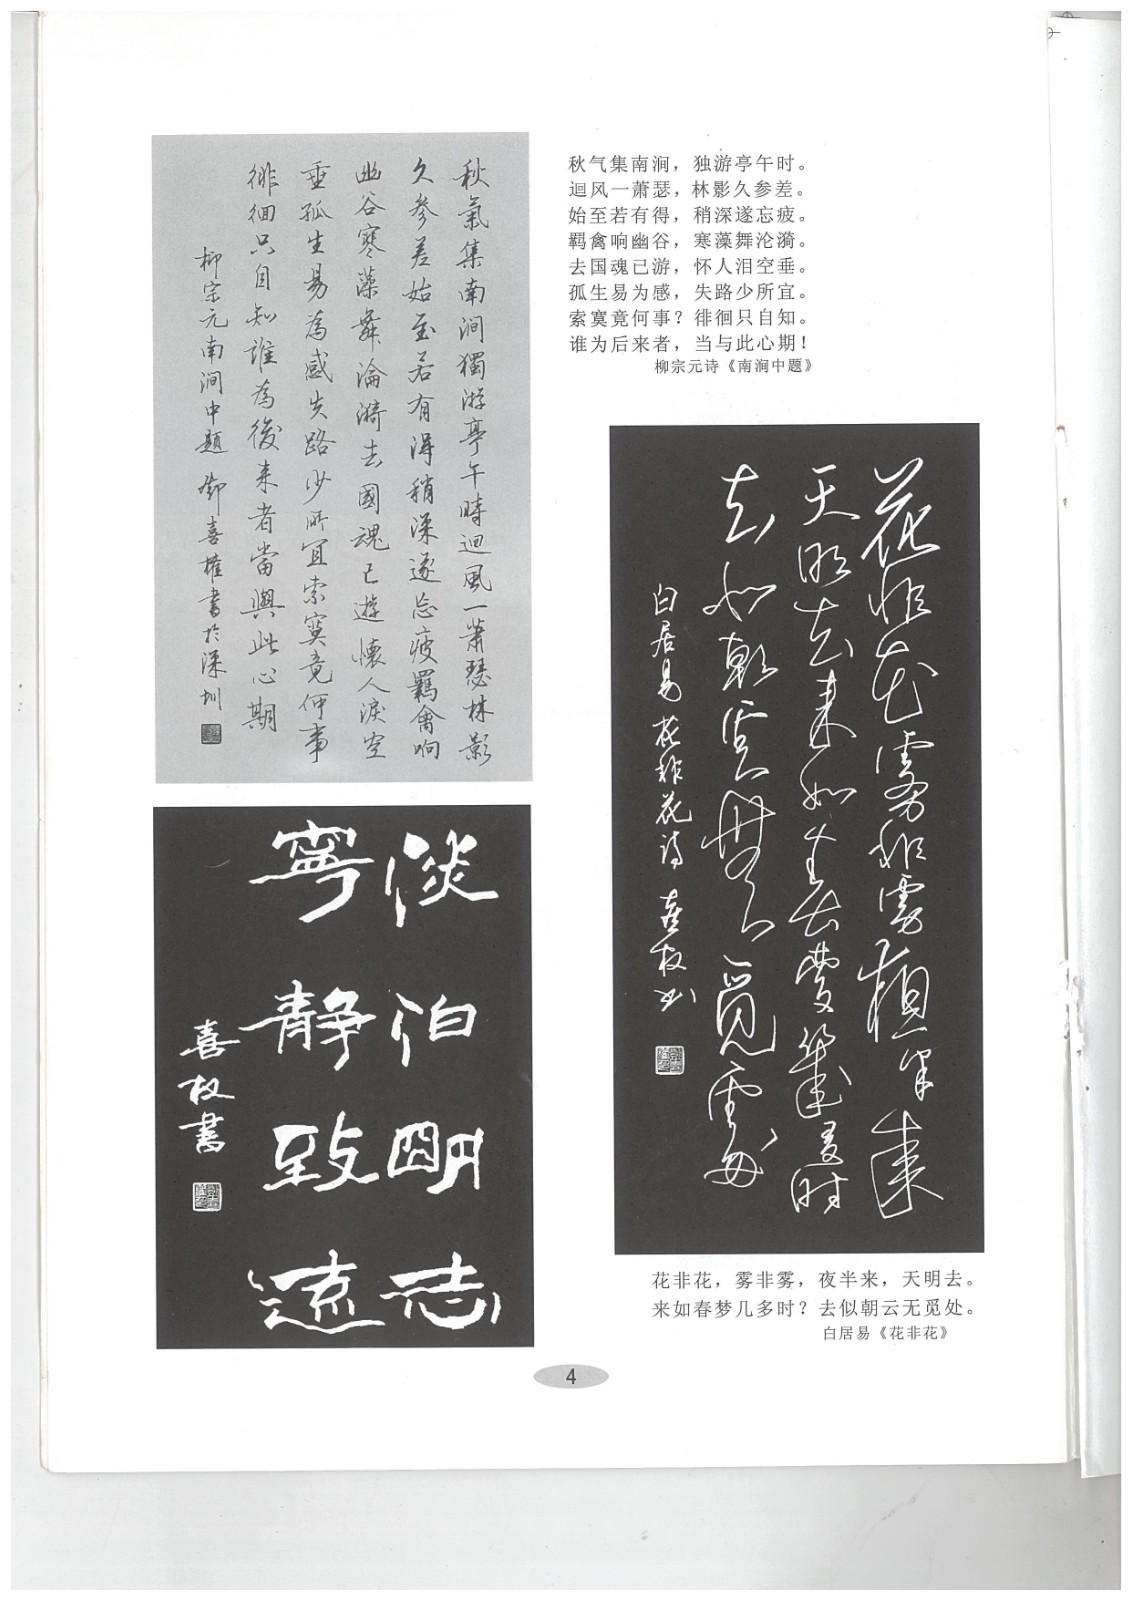 秋氣集南澗獨游亭午時迴風一蕭瑟林影
久參差始至若有得稍深遂忘疲羈禽响
幽谷寒藻舞淪漪去國魂已遊懷人淚空
垂孤生易為感失路少所宜索寞竟何事
徘徊只自知誰為後来者當與此心期
柳宗元南澗中題 鄧喜權書於深圳
秋气集南涧，独游亭午时。
迴风一萧瑟，林影久参差。
始至若有得，稍深遂忘疲。
羁禽响幽谷，寒藻舞沦漪。
去国魂已游，怀人泪空垂。
孤生易为感，失路少所宜。
索寞竟何事？徘徊只自知。
谁为后来者，当与此心期！
柳宗元诗《南涧中题》
淡泊明志
寧静致遠
喜权書
花非花雾非雾夜半来
天明去来如春夢幾多时
去似朝云無觅處
白居易花非花诗 喜权书
花非花，雾非雾，夜半来，天明去。
来如春梦几多时？去似朝云无觅处。
白居易《花非花》
4